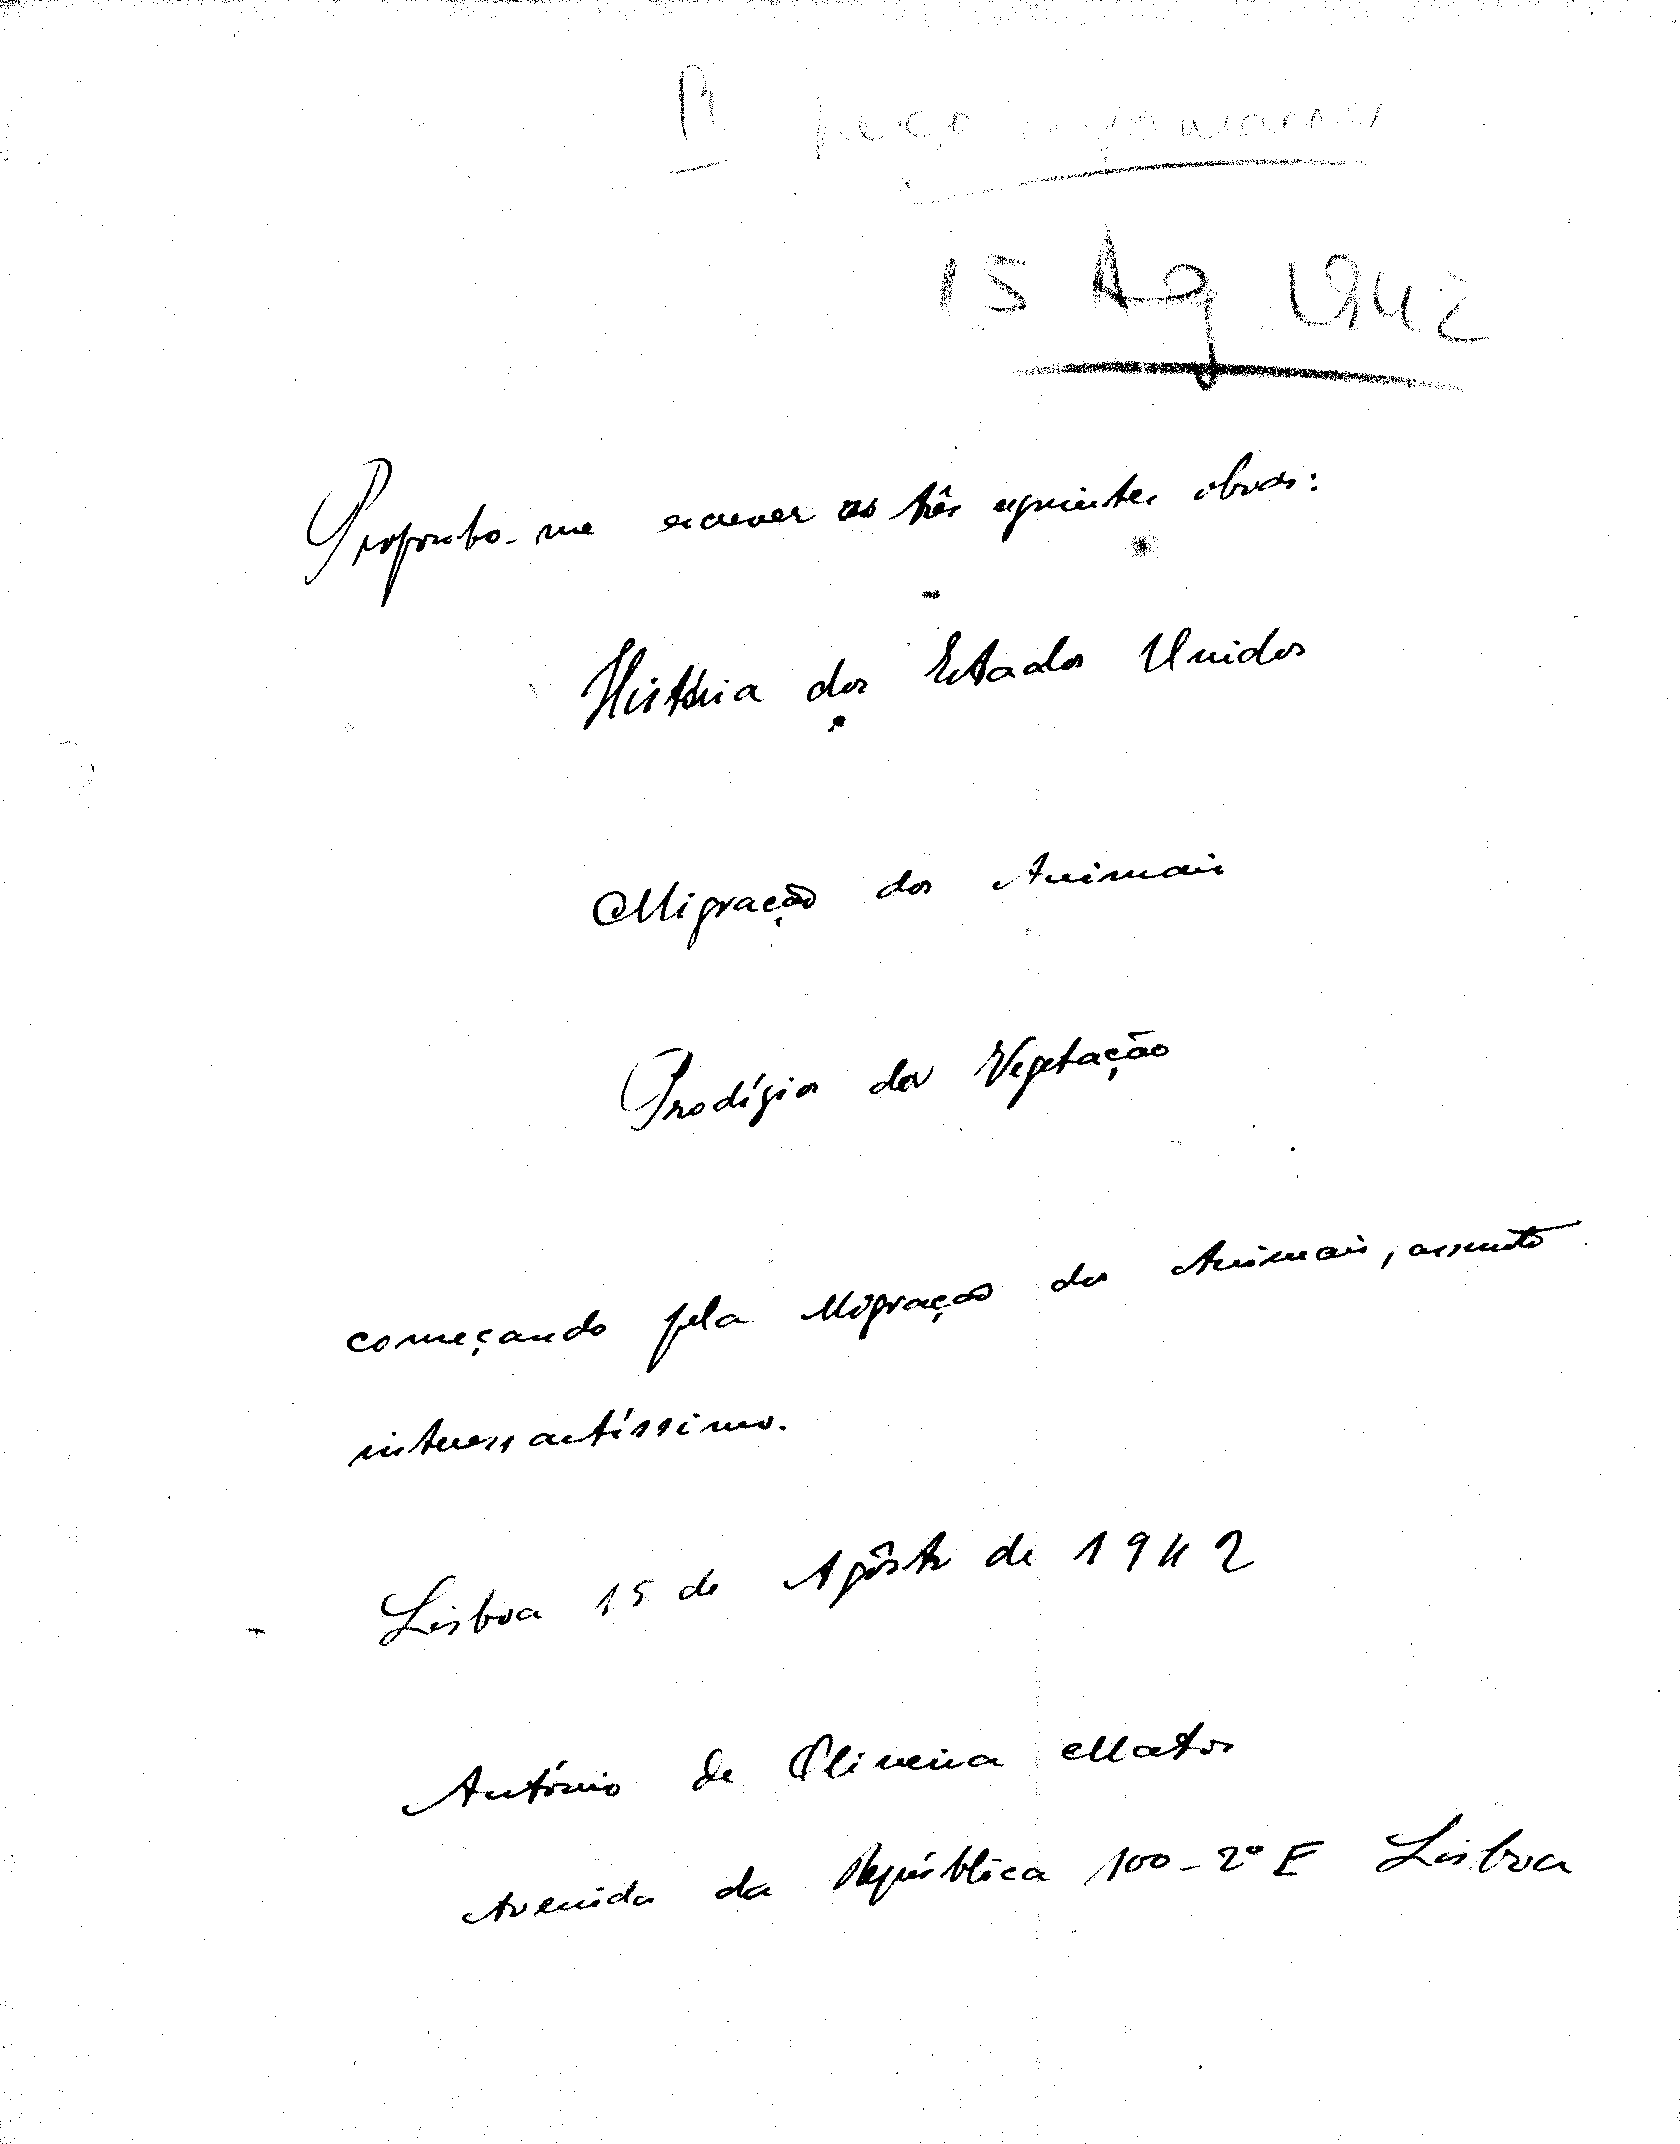 R peço
15 Ag 1942
Proponho-me escrever as três seguintes obras:
História dos Estados Unidos
Migração dos Animais
Prodígios da Vegetação
começando pela Migração dos Animais, assunto
interessantíssimo.
Lisboa 15 de Agôsto de 1942
António de Oliveira Matos
Avenida da República 100-2º E Lisboa